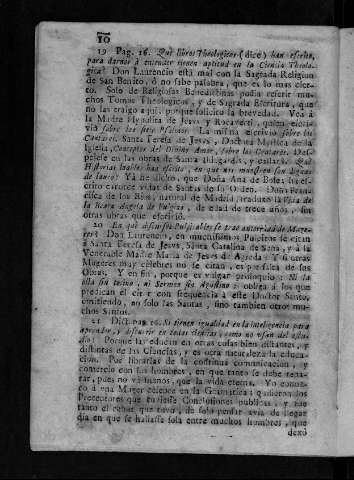 10
19 Pag. 16. Què libros Theologicos (dice) han escrito,
para darnos à entender tienen aptitud en la Ciencia Theolo-
gica? Don Laurencio està mal con la Sagrada Religion
de San Benito, ò no sabe palabra, que es lo mas cier-
to. Solo de Religiosas Benedictinas podia referir mu-
chos Tomos Theologicos, y de Sagrada Escritura, que
no las traigo aqui, porque solicito la brevedad. Vea à
la Madre Hypolita de Jesus y Rocaverti, quien escri-
viò sobre los siete Psalmos. La misma escrivio sobre los
Cantares. Santa Teresa de Jesus, Doctora Mystica de la
Iglesia, Conceptos del Divino Amor, sobre los Cantares.
pese en las obras de Santa Ildegardis, y callarà. Què
Historias hablè han escrito, es que no muestren son Ligas
de lauro? Yà he dicho, que Doña Ana de
crito catorce vidas de Santas de su Orden. Doña Fran-
cisca de los Rios, natural de Madrid, traduxo la Vida de
la Beata Angela de Fulgino, de edad de trece años, sin
otras obras que escriviò.
20 En què discursos Pulpitables se trae autoridad de Muge-
res? Don Laurencio, en muchissimos Pulpitos se citan
à Santa Teresa de Jesus, Santa Catalina de Sena, y à la
Venerable Madre Maria de Jesus de Agreda: Y si otras
Mugeres muy celebres no se citan, es por falta de sus
Obras. Y en fin, porque es vulgar proloquio: Ni la
olla sin tocino, ni Sermon sin Agustino: obliga à los que
predican el citar con frequencia à este Doctor Santo,
omitiendo, no solo las Santas, sino tambien otros mu-
chos Santos.
21 Dice pag. 16. Si tienen igualdad en la inteligencia para
aprender, y discurrir en todas Ciencias, como no usan del estu-
dio? Porque las educan en otras cosas bien distantes, y
distintas de las Ciencias, y es otra naturaleza la educa-
cion. Por librarlas de la continua comunicacion, y
comercio con los hombres, en que tanto se debe repa-
rar, pues no và menos, que la vida eterna. Yo conoz-
co à una Muger celebre en la Gramatica: quisieron los
Preceptores que tuviesse Conclusiones publicas, y fue
tanto el rubor que tuvo, de solo pensar avia de llegar
dia en que se hallasse sola entre muchos hombres, que
dexò